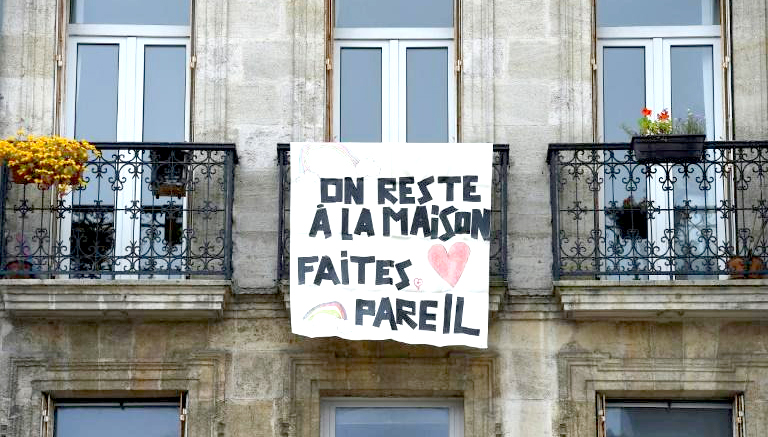 ON RESTE
À LA MAiSON
FAiTES
PAREIL